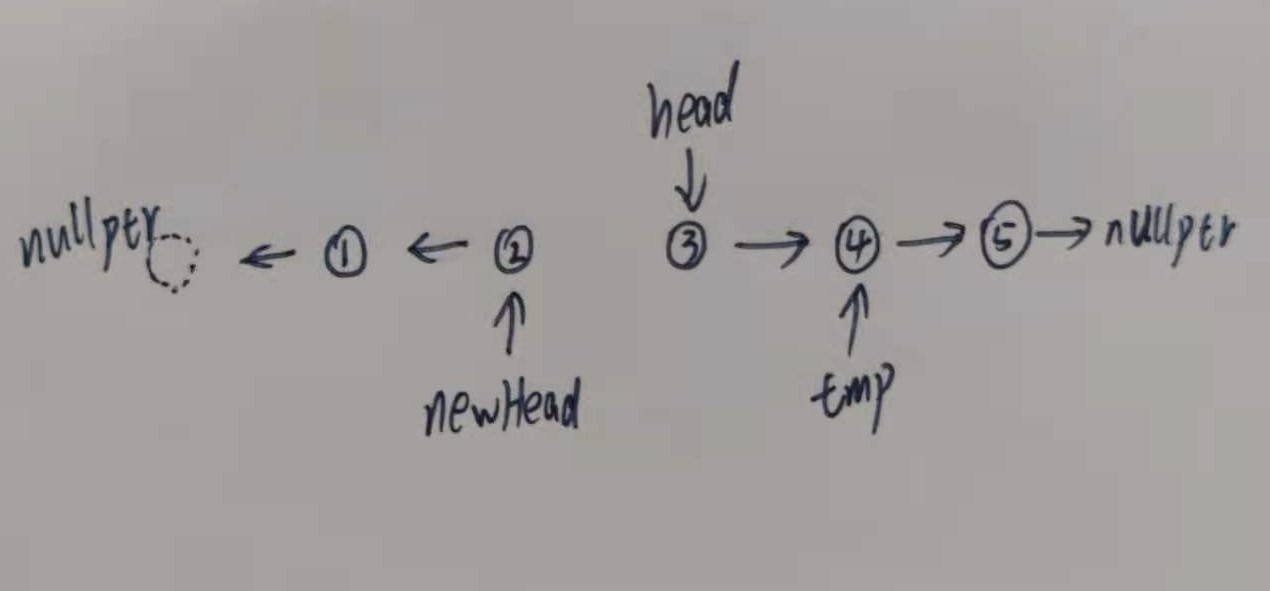 head
nullptr ← ① ← ② ③ → ④ → ⑤ → nullptr
newHead tmp